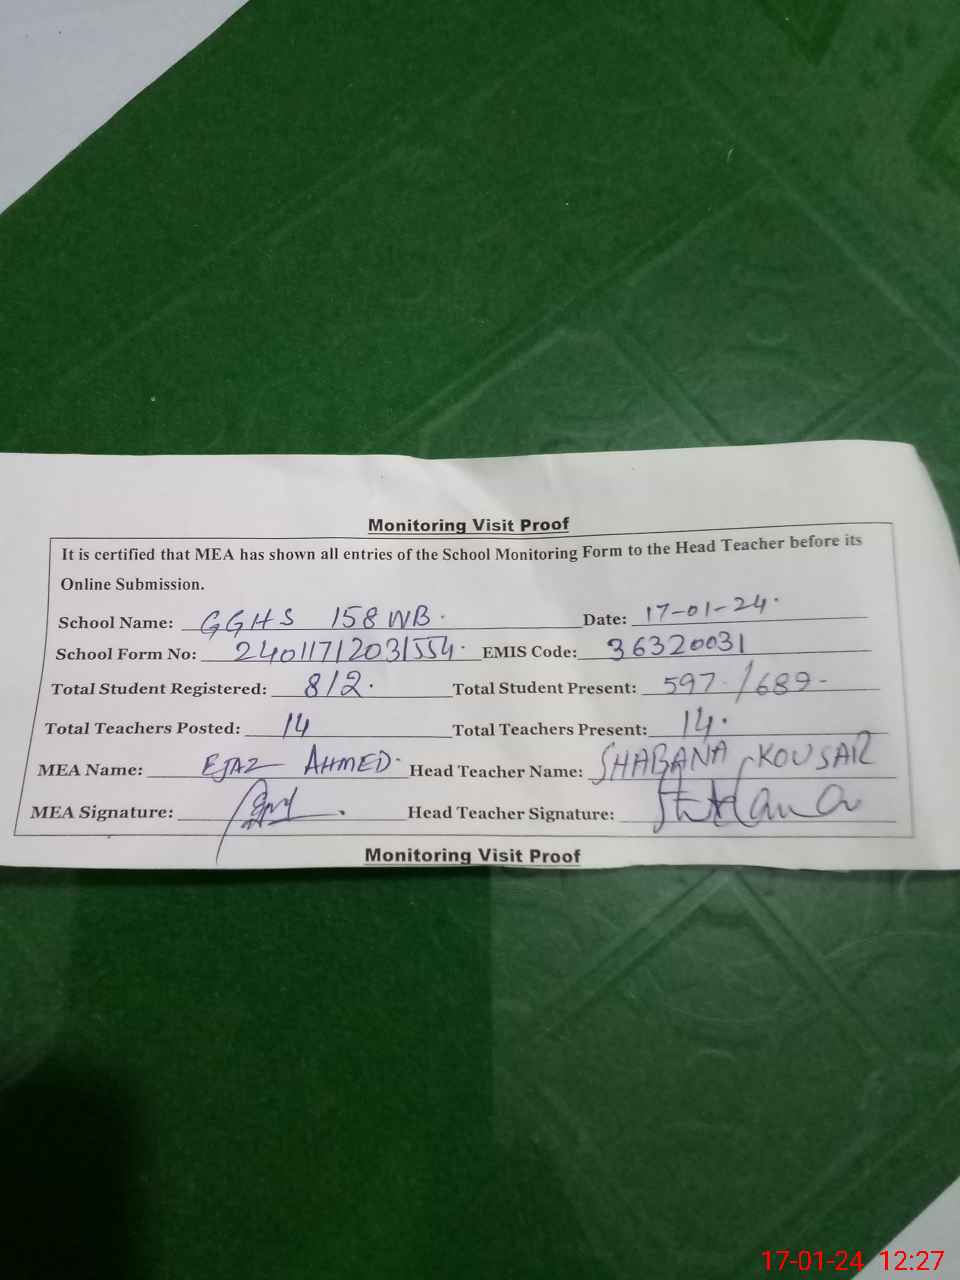 Monitoring Visit Proof
It is certified that MEA has shown all entries of the School Monitoring Form to the Head Teacher before its
Online Submission.
School Name: GGHS 158 WB. Date: 17-01-24.
School Form No: 24011712031554. EMIS Code: 36320031
Total Student Registered: 812. Total Student Present: 597./689-
Total Teachers Posted: 14 Total Teachers Present: 14.
MEA Name: EJAZ AHMED. Head Teacher Name: SHABANA KOUSAR
MEA Signature: Head Teacher Signature:
Monitoring Visit Proof
17-01-24 12:27